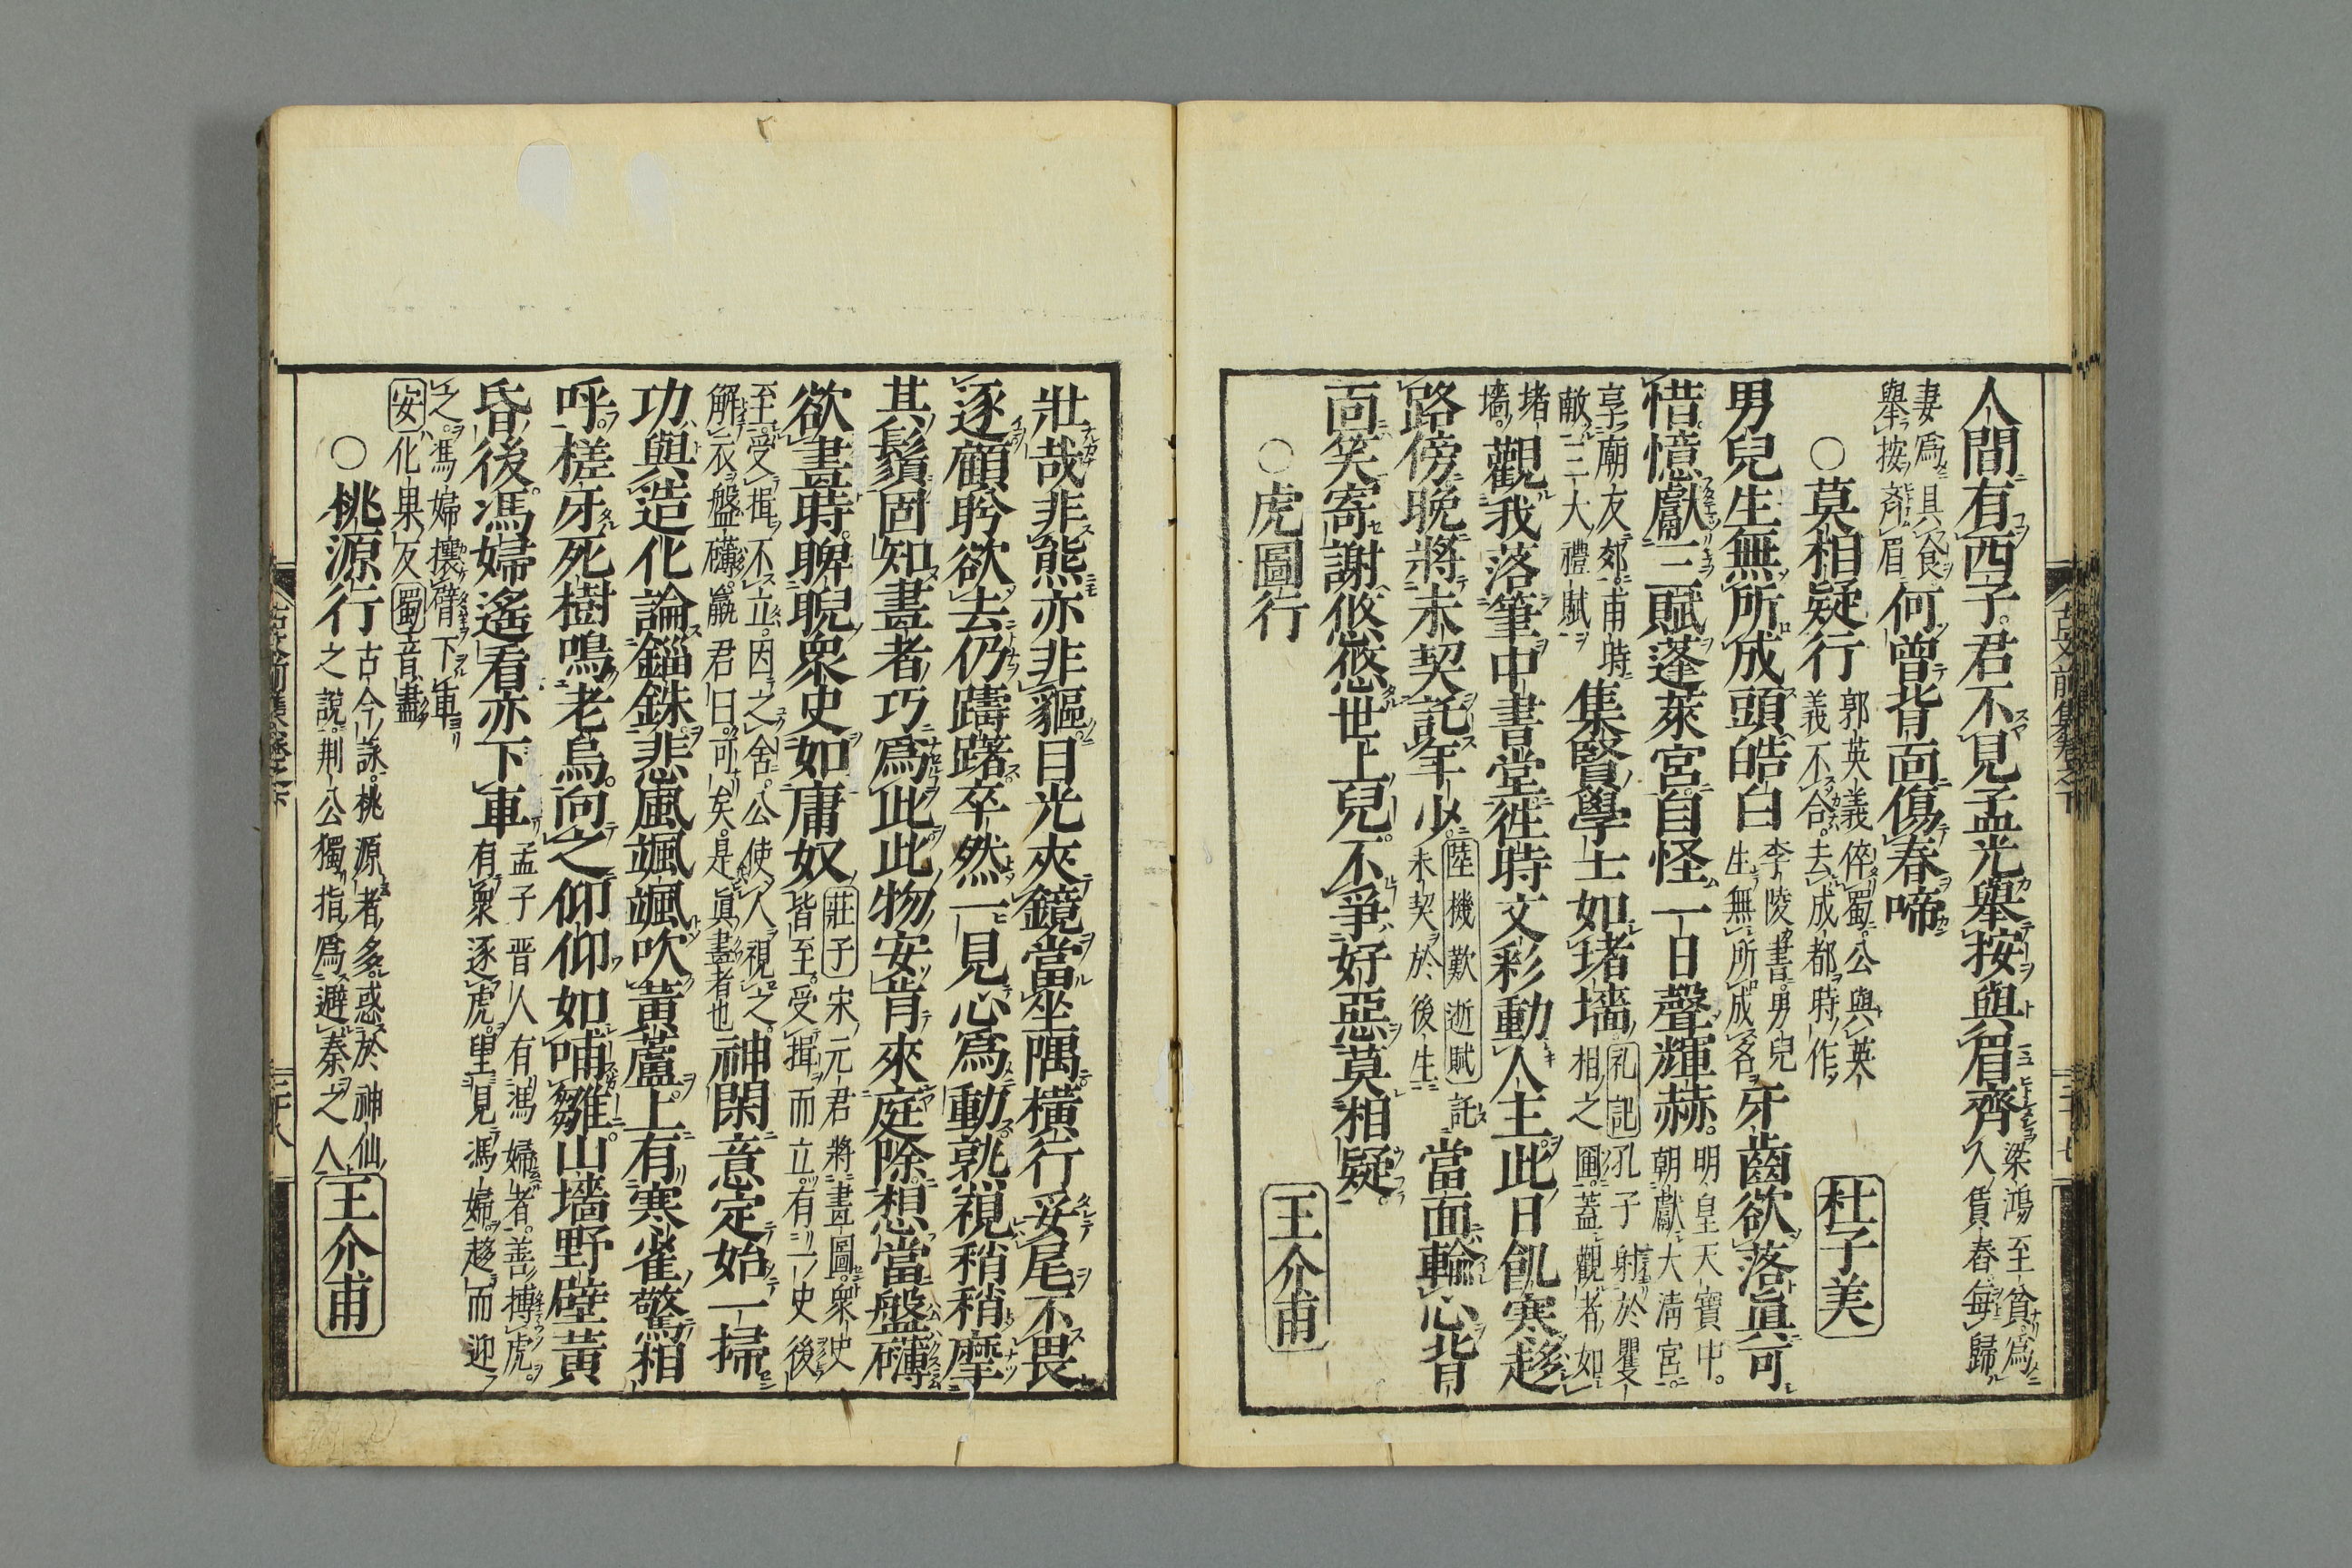 人間有西子君不見孟光舉按與眉齊梁鴻至貧爲人賃舂每歸
妻爲具食舉按齊眉何曾背面傷春啼
○莫相疑行郭英義倅蜀公與英義不合去成都時作杜子美
男兒生無所成頭皓白李陵書男兒生無所成名牙齒欲落眞可
惜憶獻三賦蓬萊宮自怪一日聲輝赫明皇天寶中朝獻大淸宮
享廟友郊甫時敵三大禮賦集賢學士如堵墻礼記孔子射於矍相之圃蓋觀者如
堵墻觀我落筆中書堂徃時文彩動人主此日飢寒趍
路傍晚將末契託年少陸機歎逝賦託末契於後生當面輸心背
面笑寄謝悠悠世上兒不爭好惡莫相疑
○虎圖行王介甫
壯哉非熊亦非貙目光夾鏡當坐隅橫行妥尾不畏
逐顧盻欲去仍躊躇卒然一見心爲動孰視稍稍摩
其鬚固知畫者巧爲此此物安肯來庭除想當盤礴
欲畫時睥睨衆史如庸奴莊子宋元君將畫圖衆史皆至受揖而立有一史後
至受揖不立因之舍公使人視之解衣盤礴羸君曰可矣是眞畫者也神閑意定始一掃
功與造化論錙銖悲風颯颯吹黃蘆上有寒雀驚相
呼槎牙死樹鳴老烏向之仰仰如哺雛山墻野壁黃
昏後馮婦遙看亦下車孟子晋人有馮婦者善搏虎有衆逐虎望見馮婦趍而迎
之馮婦攘臂下車安化果友蜀音畫
○桃源行古今詠桃源者多惑於神仙之說荆公獨指爲避秦之人王介甫
古文前集卷之下